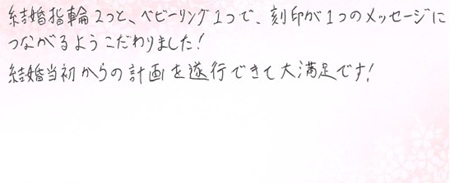 結婚指輪2つと、ベビーリング1つで、刻印が1つのメッセージに
つながるようこだわりました!
結婚当初からの計画を遂行できて大満足です!